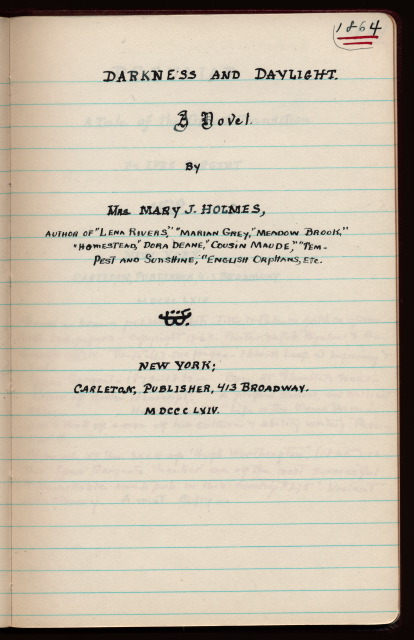 1864
DARKNESS AND DAYLIGHT.
A Novel.
By
Mrs MARY J. HOLMES,
AUTHOR OF "LENA RIVERS," "MARIAN GREY," "MEADOW BROOK,"
"HOMESTEAD," DORA DEANE," COUSIN MAUDE," "TEM-
PEST AND SUNSHINE," "ENGLISH ORPHANS, ETC.
NEW YORK;
CARLETON, PUBLISHER, 413 BROADWAY.
MDCCCLXIV.